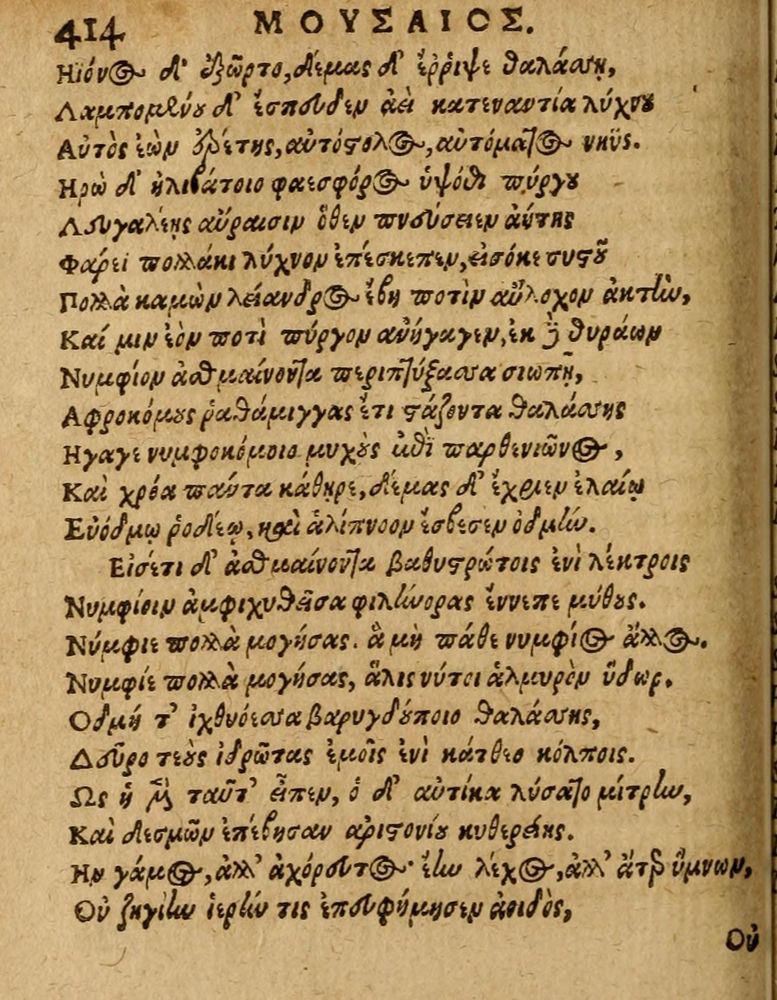 414 ΜΟΥΣΑΙΟΣ.
Ηϊόνος δ' ἐξῶρτο, δέμας δ' ἔῤῥιψε θαλάσσῃ,
Λαμπομένου δ' ἔσπευδεν ἀεὶ κατεναντία λύχνου
Αὐτὸς ἐὼν ἐρέτης, αὐτόστολος, αὐτόματος νηῦς.
Ηρὼ δ' ἠλιβάτοιο φαεσφόρος ὑψόθι πύργου
Λευγαλέης αὔραισιν ὅθεν πνεύσειεν ἀύτης
Φάρεϊ πολλάκι λύχνον ἐπέσκεπεν, εἰσόκε σηστοῦ
Πολλὰ καμὼν λείανδρος ἔβη ποτὶν αὔλοχον ἀκτὴν,
Καί μιν ἑὸν ποτὶ πύργον ἀνήγαγεν, ἐκ δὲ θυράων
Νυμφίον ἀσθμαίνοντα περιπτύξασα σιωπῇ,
Αφροκόμους ῥαθάμιγγας ἔτι στάζοντα θαλάσσης
Ηγαγε νυμφοκόμοιο μυχοὺς ἐπὶ παρθενιῶνος,
Καὶ χρόα πάντα κάθηρε, δέμας δ' ἔχριεν ἐλαίῳ
Εὐόδμῳ ῥοδέῳ, καὶ ἁλίπνοον ἔσβεσεν ὀδμήν.
Εἰσέτι δ' ἀσθμαίνοντα βαθυστρώτοις ἐνὶ λέκτροις
Νυμφίοιν ἀμφιχυθεῖσα φιλήνορας ἔννεπε μύθους.
Νύμφιε πολλὰ μογήσας. ἃ μὴ πάθε νυμφίος ἄλλος.
Νυμφίε πολλὰ μογήσας, ἅλις νύτοι ἁλμυρὸν ὕδωρ.
Οδμή τ' ἰχθυόεσσα βαρυγδούποιο θαλάσσης,
Δεῦρο τεοὺς ἱδρῶτας ἐμοῖς ἐνὶ κάτθεο κόλποις.
Ως ἡ μὲν ταῦτ' εἶπεν, ὁ δ' αὐτίκα λύσατο μίτρην,
Καὶ θεσμῶν ἐπέβησαν ἀριστονόου κυθερείης.
Ην γάμος, ἀλλ' ἀχόρευτος· ἔην λέχος, ἀλλ' ἄτερ ὕμνων,
Οὐ ζυγίην ἱερήν τις ἐπευφήμησεν ἀοιδὸς,
Οὐ